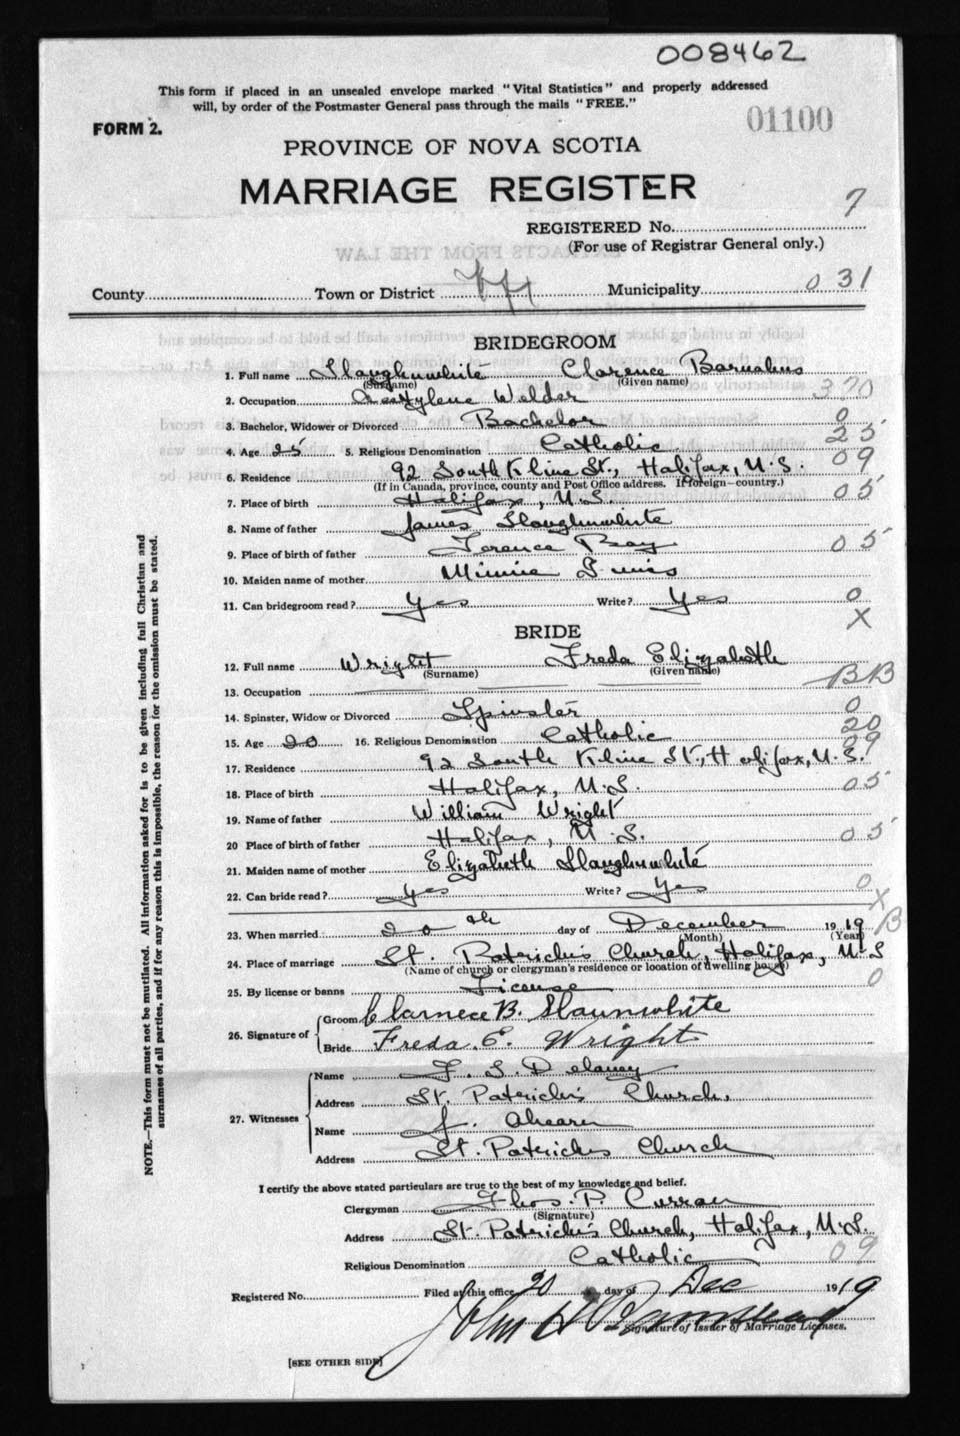 008462
This form if placed in an unsealed envelope marked "Vital Statistics" and properly addressed
will, by order of the Postmaster General pass through the mails "FREE."
FORM 2.
01100
PROVINCE OF NOVA SCOTIA
MARRIAGE REGISTER
7
REGISTERED No.
(For use of Registrar General only.)
County Town or District Hfx Municipality 031
BRIDEGROOM
1. Full name Slaughnwhite Clarence Barnabus
(Surname) (Given name)
2. Occupation Acetylene Welder 370
3. Bachelor, Widower or Divorced Bachelor 0
4. Age 25 5. Religious Denomination Catholic 25
6. Residence 92 South Kline St., Halifax, N.S. 09
(If in Canada, province, county and Post Office address. If foreign—country.)
7. Place of birth Halifax, N.S. 05
8. Name of father James Slaughnwhite
9. Place of birth of father Terence Bay 05
10. Maiden name of mother Minnie
11. Can bridegroom read? Yes Write? Yes 0
X
BRIDE
12. Full name Wright Freda Elizabeth
(Surname) (Given name)
BB
13. Occupation
14. Spinster, Widow or Divorced Spinster 0
15. Age 20 16. Religious Denomination Catholic 20
17. Residence 92 South Kline St., Halifax, N.S. 09
18. Place of birth Halifax, N.S. 05
19. Name of father William Wright
20 Place of birth of father Halifax, N.S. 05
21. Maiden name of mother Elizabeth Slaughnwhite
22. Can bride read? Yes Write? Yes 0
X
23. When married 20th day of December 1919 B
(Month) (Year)
24. Place of marriage St. Patrick's Church, Halifax, N.S
(Name of church or clergyman's residence or location of dwelling house)
25. By license or banns License 0
26. Signature of Groom Clarnece B. Slaunwhite
Bride Freda. E. Wright
27. Witnesses Name F. S. Delaney
Address St. Patrick's Church.
Name J. Ahearn
Address St. Patricks Church
I certify the above stated particulars are true to the best of my knowledge and belief.
Clergyman Thos. P. Curran
(Signature)
Address St. Patrick's Church, Halifax, N.S.
Religious Denomination Catholic 09
Registered No. Filed at this office 20 day of Dec 1919
John H
Signature of Issuer of Marriage Licenses.
[SEE OTHER SIDE]
NOTE.—This form must not be mutilated. All information asked for is to be given including full Christian and
surnames of all parties, and if for any reason this is impossible, the reason for the omission must be stated.